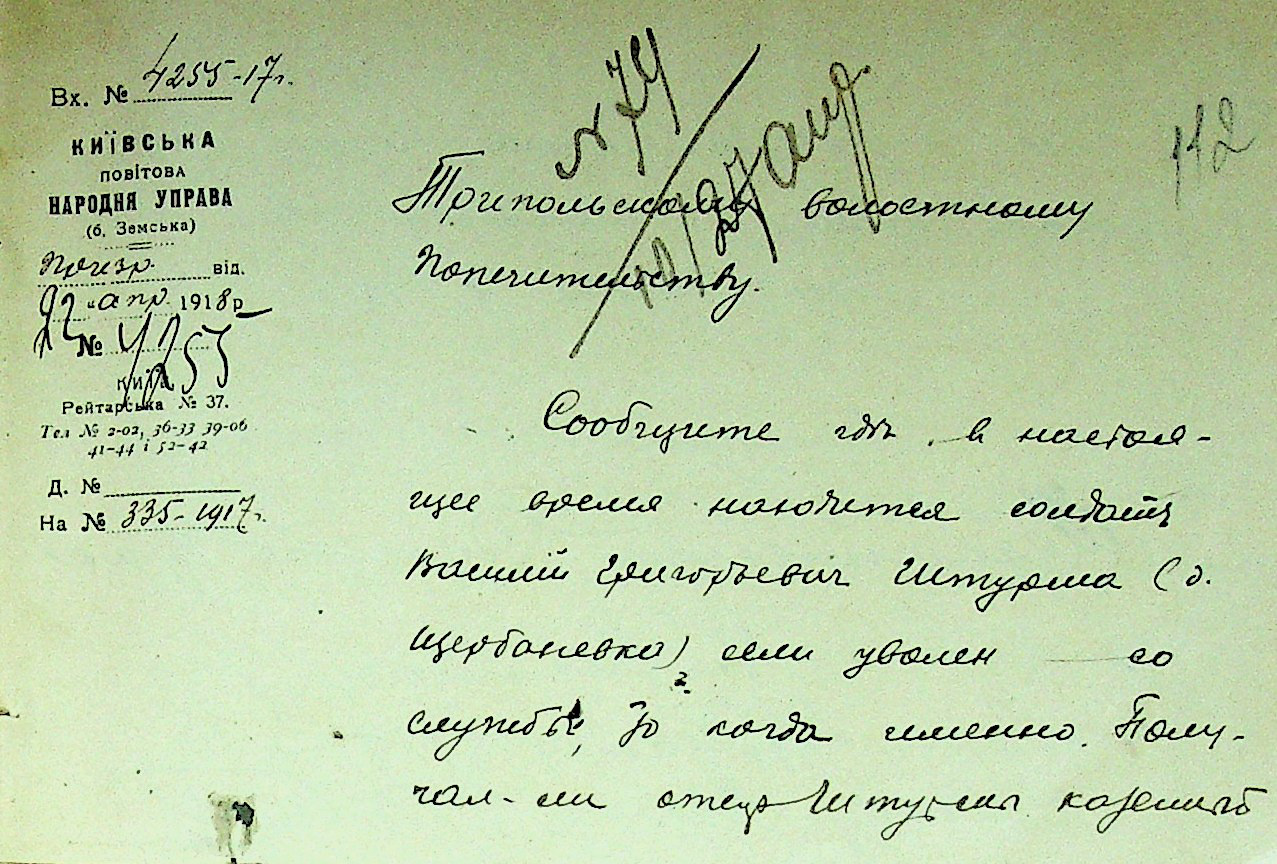 Вх. № 4255-17г.
КИЇВСЬКА
ПОВІТОВА
НАРОДНЯ УПРАВА
(б. Земська)
Призр. від.
22 "апр. 1918 р
№ 4255
КИЇВ
Рейтарська № 37.
Тел № 2-02, 36-33 39-06
41-44 і 52-42
Д. №
На № 335-1917г.
N 74
112
Трипольскому волостному
Попечительству.
Сообщите где в настоя-
щее время находится солдатъ
Василій Григорьевич Штурма (д.
Щербаневка) если уволен со
службы, то когда именно. Полу-
чал-ли отец Штурмы казенный